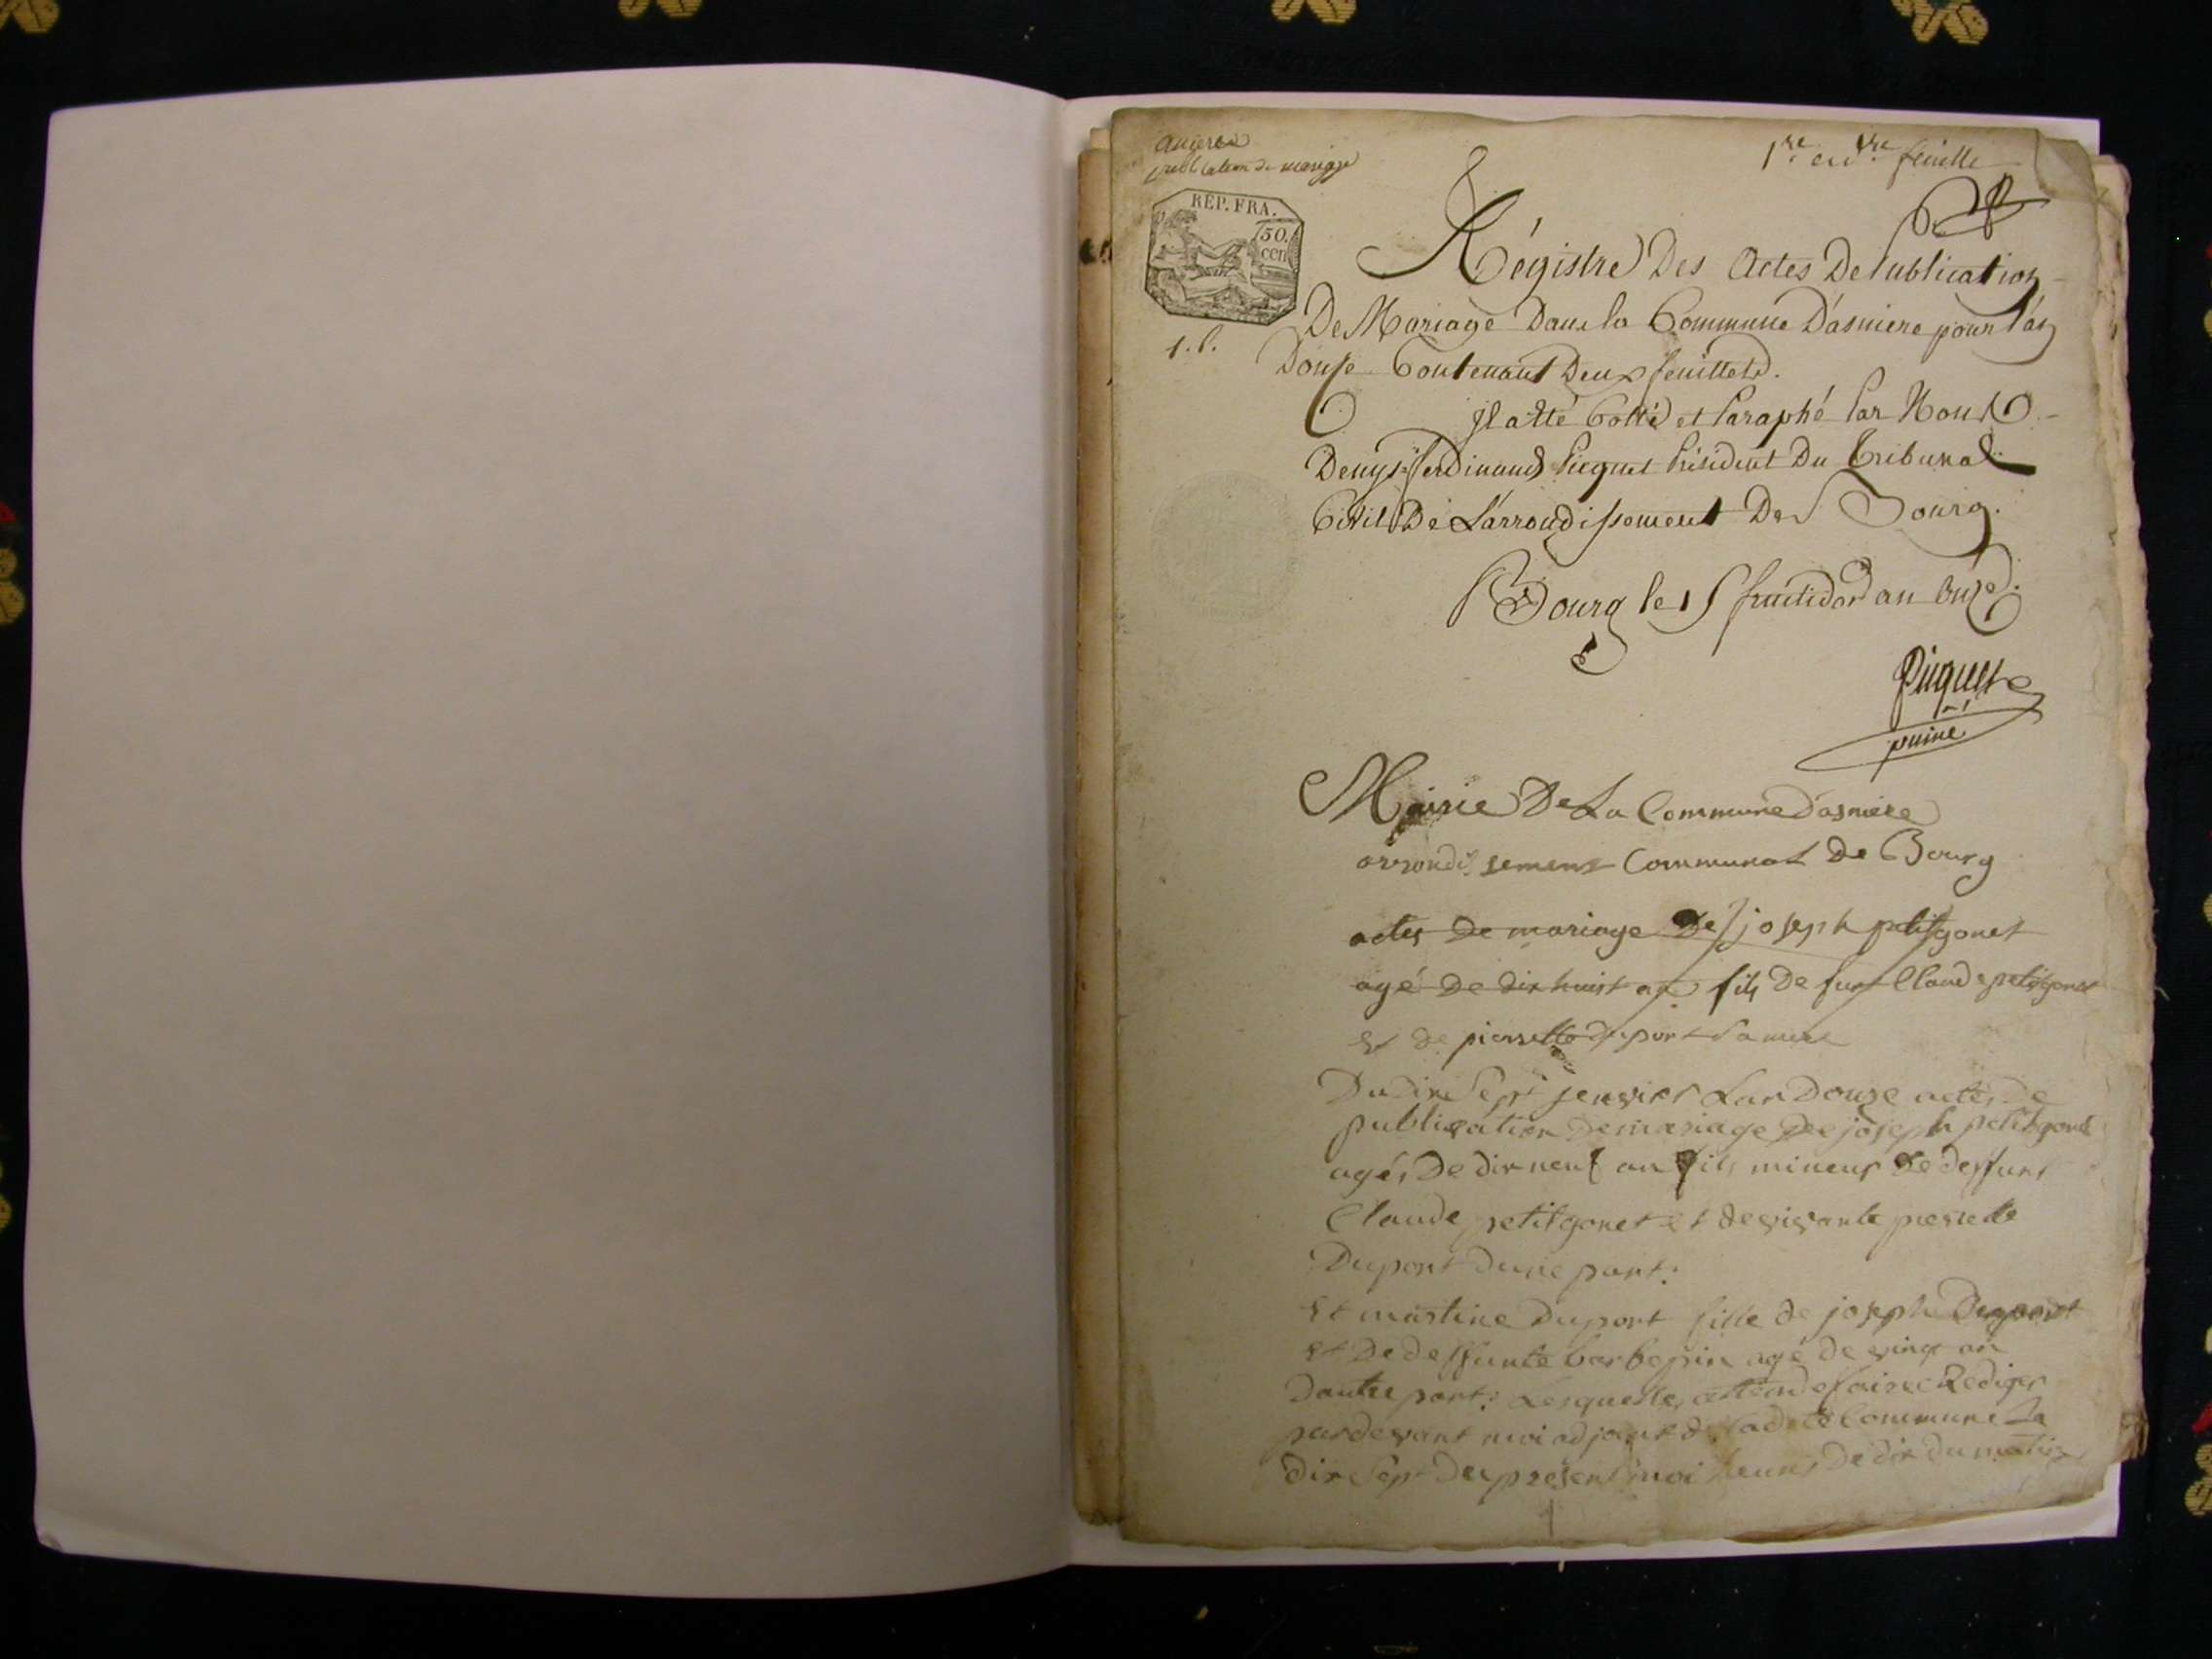 asniere
publication de mariage
1re et dre feuille
REP. FRA.
50.
cen
Régistre Des Actes De Publication
De Mariage Dans la Commune D'asniere pour l'an
Douze Contenant Deux feuillets.
Il a été Cotté et Paraphé Par Nous
Denys ferdinand Picquet Président Du Tribunal
Civil De L'arrondissement De Bourg.
Bourg le 15 fructidor an onze.
Picquet
puiné
Mairie De La Commune D'asniere
arrondissement Communal De Bourg
actes De mariage De joseph petitgonet
agé De dix huist an fils De funt Claude petitgonet
et de pierrette duport sa mere
Du dix Sept jenvier Lan Douze actes De
publication De mariage De joseph petitgonet
agés De dix neuf an fils mineur De deffunt
Claude petitgonet et de vivante pierrette
Duport dune part:
et martine Duport fille de joseph Duport
et De deffunte barbe pin agé de vingt an
Dautre part: Lesquelles faire Rediger
pardevant moi adjoint de ladite Commune Le
dix Sept Du present moi heures De dix du matin